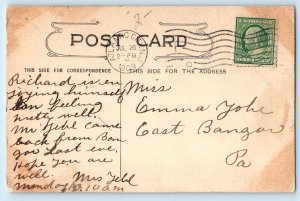 POST CARD
THIS SIDE FOR CORRESPONDENCE
THIS SIDE FOR THE ADDRESS
Richard is en
joying himself
Am feeling
pretty well.
Mr Yehl came
back from Ban
gor last eve.
Hope you are
well. Mrs Yehl
Monday 10 am
Miss
Emma Yohe
East Bangor
Pa